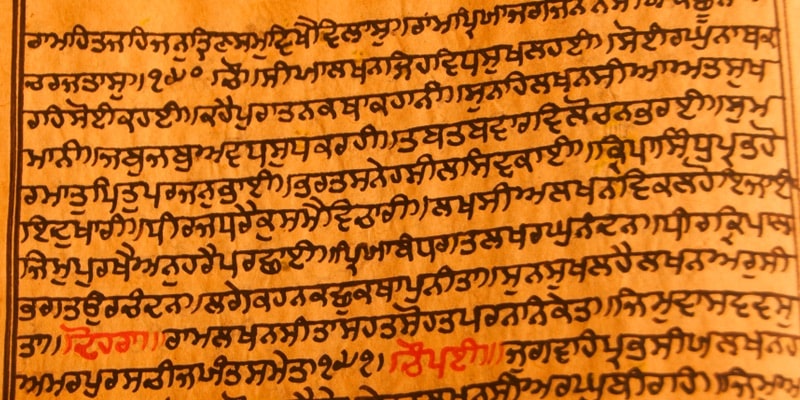 ਰਾਮਹਿਤਜਹਿਜਨੁਤ੍ਰਿਣਸਮੁਵਿਖੈਵਿਲਾਸੁ॥ਰਾਮਪ੍ਰਿਖਾਜਗਜਨਨਿ
ਚਰਜਤਾਸੁ॥੧੪੦ ਚੌ॥ਸੀਖਾਲਖਨਜਿਹਵਿਧਸੁਖਲਹਈ॥ਸੋਈਰਘੁਨਾਥਕ
ਰਹਿਸੋਈਕਹਈ॥ਕਹੈਪੁਰਾਤਨਕਥਾਕਹਾਨੀ॥ਸੁਨਹਿਲਖਨਸੀਆਅਤਸੁਖ
ਮਾਨੀ॥ਜਬੁਜਬੁਅਵਧਸੁਧਕਰਹੀ॥ਤਬਤਬਵਾਰਵਿਲੋਚਨਭਰਈ॥ਸੁਮ
ਰਮਾਤੁਪਿਤੁਪਰਜਨੁਭਾਈ॥ਭਰਤਸਨੇਹਸੀਲਸਿਵਕਾਈ॥ਕ੍ਰਿਪਾਸਿੰਧੁਪ੍ਰਭਹੋ
ਇਦੁਖਾਰੀ॥ਧੀਰਜਧਰੈਕੁਸਮੈਵਿਚਾਰੀ॥ਲਖਸੀਅਲਖਨਵਿਕਲਹੋਇਜਾਈ
ਜਿਮੁਪੁਰਖੈਅਨੁਹਰੈਪਰਛਾਈ॥ਪ੍ਰਿਖਾਬੰਧਗਤਲਖਰਘੁਨੰਦਨ॥ਧੀਰਕ੍ਰਿਪਾਲ
ਭਗਤਉਰਚੰਦਨ॥ਲਗੇਕਹਨਕਛੁਕਥਾਪੁਨੀਤਾ॥ਸੁਨਸੁਖਲਹੈਲਖਨਅਰੁਸੀ
ਤਾ॥ਦੋਹਰਾ॥ਰਾਮਲਖਨਸੀਤਾਸਹਤਸੋਹਤਪਰਨਨਿਕੇਤ॥ਜਿਮੁਵਾਸਵਵਸੁ
ਅਮਰਪੁਰਸਚੀਜਖੰਤਸਮੇਤ॥੧੪੧॥ਚੌਪਈ॥ਜੁਗਵਹਿਪ੍ਰਭੁਸੀਖਲਖਨਹ